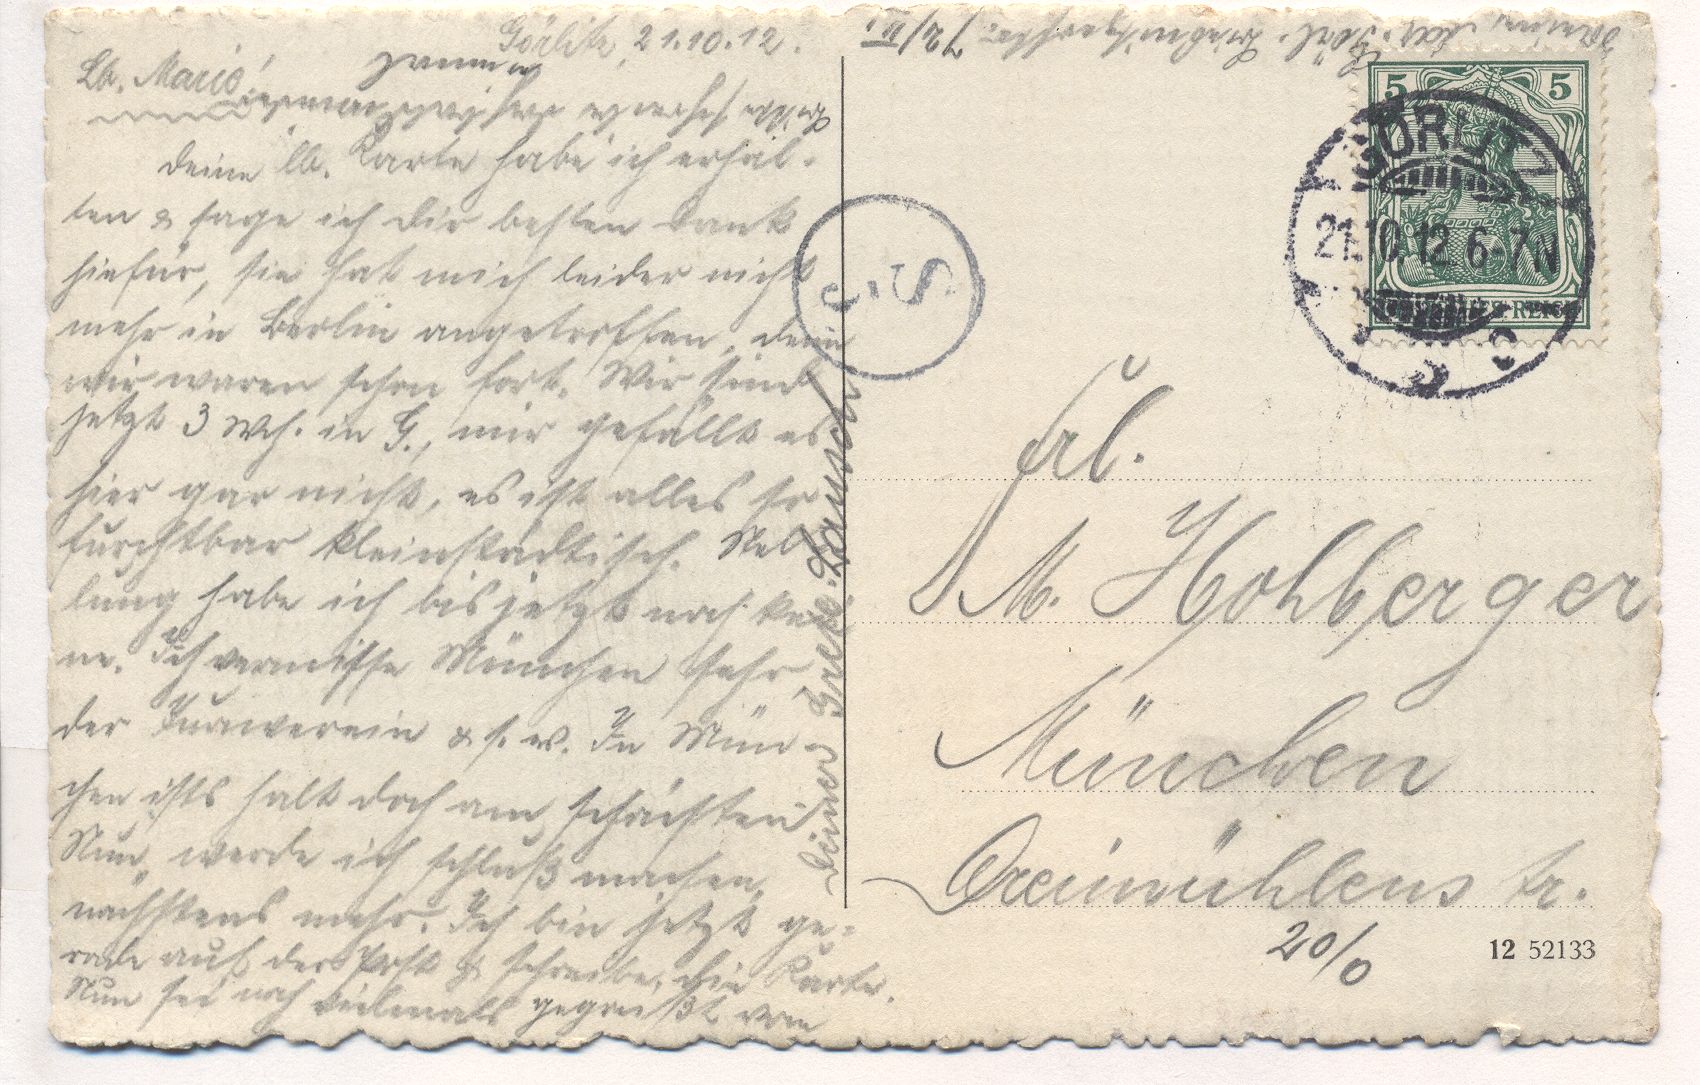 Görlitz, 21.10.12.
Lb. Marie!
Deine lb. Karte habe ich erhal-
ten & sage ich dir besten Dank
hiefür, sie hat mich leider nicht
mehr in Berlin angetroffen, denn
wir waren schon fort. Wir sind
jetzt 3 Wch. in G., mir gefällt es
hier gar nicht, es ist alles so
furchtbar kleinstädtisch. Stel
lung habe ich bis jetzt noch kei
ne. Ich vermisse München sehr,
der Turnverein & s. w. In Mün-
chen ists halt doch am schönsten
Nun werde ich schluß machen,
nächstens mehr. Ich bin jetzt ge-
rade auf der Post & schreibe die Karte.
Nun sei noch vielmals gegrüßt von
Deiner Gretl
Bitte schreib
GÖRLITZ
21.10.12. 6-7N
5 5
DEUTSCHES REICH
Frl.
M. Hohberger
München
Dreimühlenstr.
20/0
12 52133